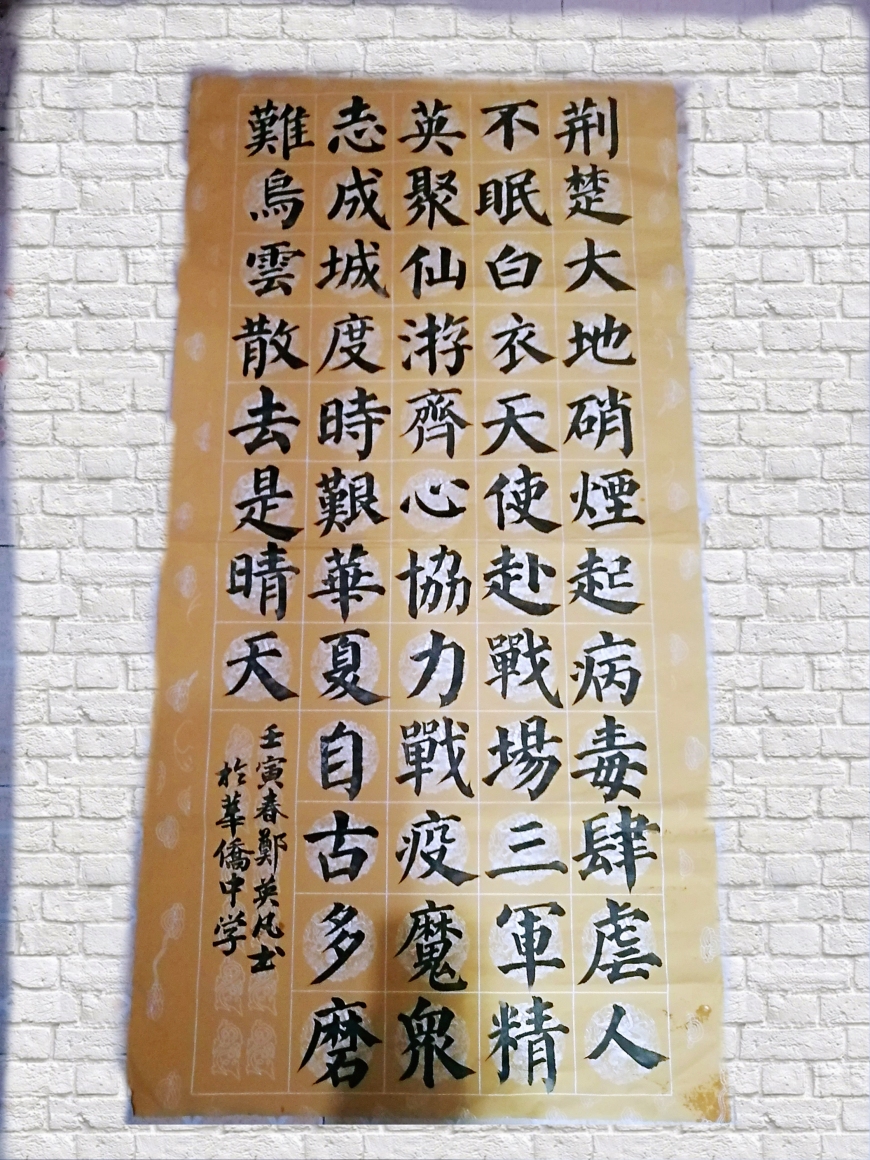 荆楚大地硝煙起病毒肆虐人
不眠白衣天使赴戰場三軍精
英聚仙游齊心協力戰疫魔衆
志成城度時艱華夏自古多磨
難烏雲散去是晴天
壬寅春鄭英凡书
於華僑中学